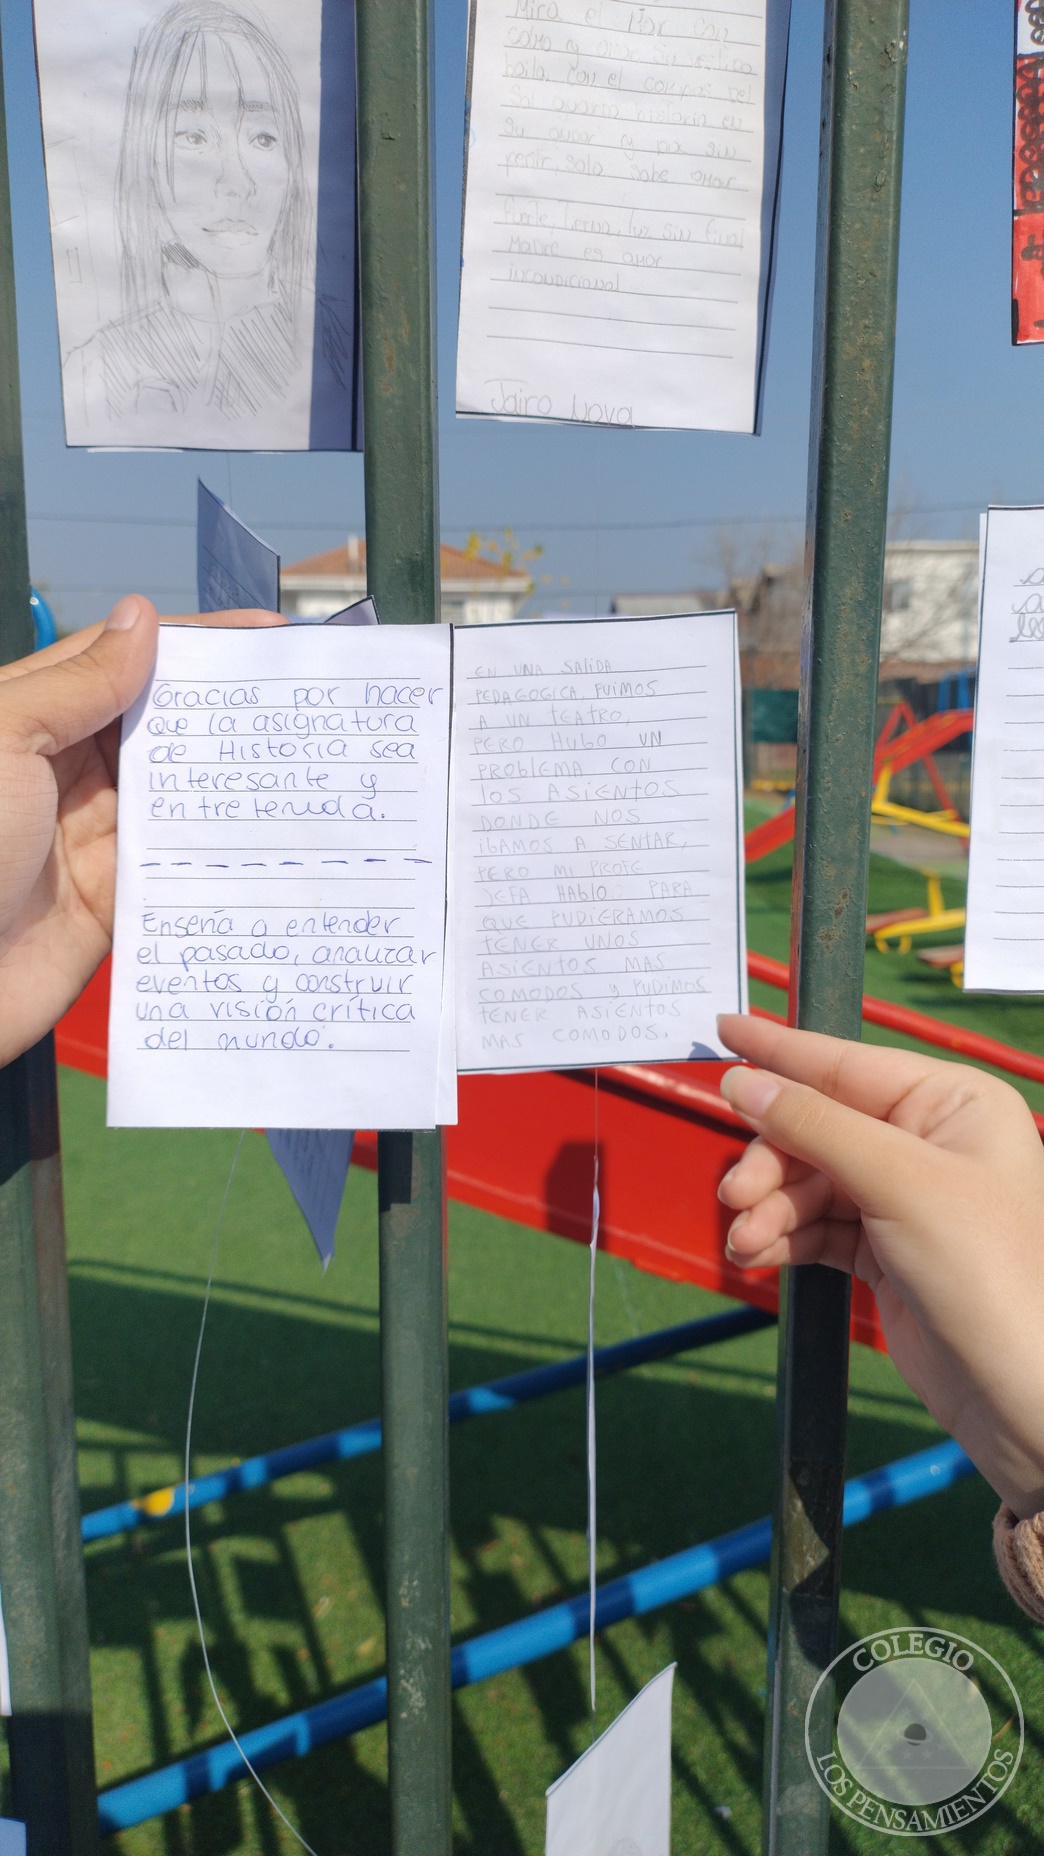 Mira el Mar con
calma y amar sin
baila con el compas del
Sol guarda historia en
su amar y paz sin
pedir, solo sabe amar
Fuerte, Tierna, luz sin final
Madre es amor
incondicional
Jairo Nova
Gracias por hacer
que la asignatura
de Historia sea
interesante y
entretenida.
Enseña a entender
el pasado, analizar
eventos y construir
una visión crítica
del mundo.
EN UNA SALIDA
PEDAGOGICA, FUIMOS
A UN TEATRO,
PERO HUBO UN
PROBLEMA CON
LOS ASIENTOS
DONDE NOS
IBAMOS A SENTAR,
PERO MI PROFE
JEFA HABLO PARA
QUE PUDIERAMOS
TENER UNOS
ASIENTOS MAS
COMODOS Y PUDIMOS
TENER ASIENTOS
MAS COMODOS.
COLEGIO
LOS PENSAMIENTOS